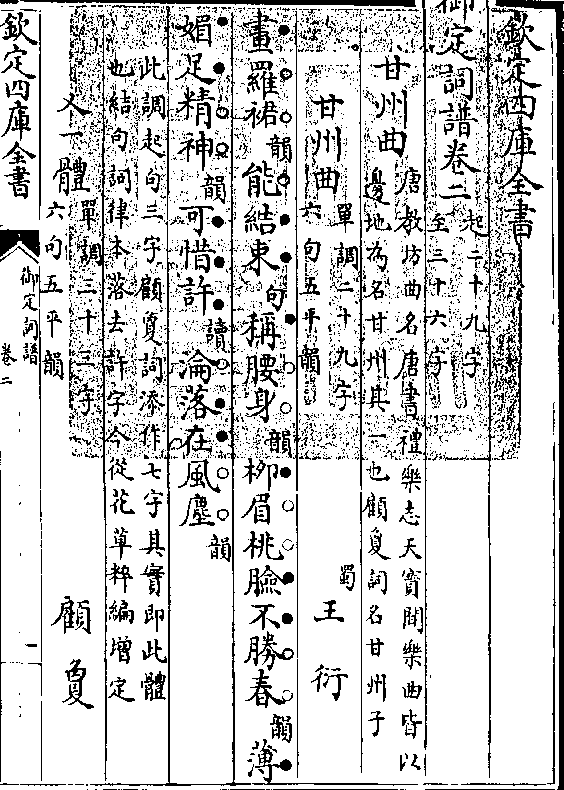 欽定四庫全書
御定詞譜卷二 起二十九字至三十六字
甘州曲 唐教坊曲名唐書禮樂志天寳間樂曲皆以
邊地為名甘州其一也顧夐詞名甘州子
甘州曲 單調二十九字六句五平韻 蜀 王衍
畫羅裙韻能結束句稱腰身韻柳眉桃臉不勝春韻薄
媚足精神韻可惜許讀淪落在風塵韻
此調起句三字顧夐詞添作七字其實即此體
也結句詞律本落去許字今從花草粹編增定
又一體 單調三十三字六句五平韻 顧夐
欽定四庫全書
御定詞譜
卷二
一